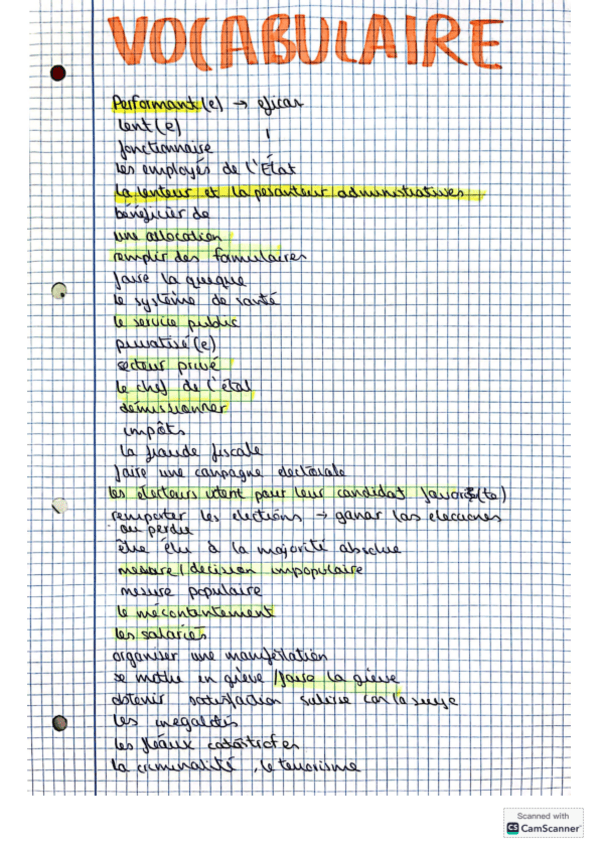 VOCABULAIRE
Performant(e) → eficaz
lent(e)
fonctionnaise
les employés de l'État
la lenteur et la pesanteur administratives
bénéficier de
une allocation
remplir des formulaires
faire la queque
le système de santé
le service public
privatisé(e)
secteur privé
le chef de l'état
démissionner
impôts
la fraude fiscale
faire une campagne électorale
les électeurs votent pour leur candidat favori(te)
remporter les élections → ganar las elecciones
ou perdre
être élu à la majorité absolue
mesure/decision impopulaire
mesure populaire
le mécontentement
les salariés
organiser une manifestation
se mettre en grève/faire la grève
obtenir satisfaction
les inegalités
les fléaux
la criminalité, le terrorisme
Scanned with
CS CamScanner